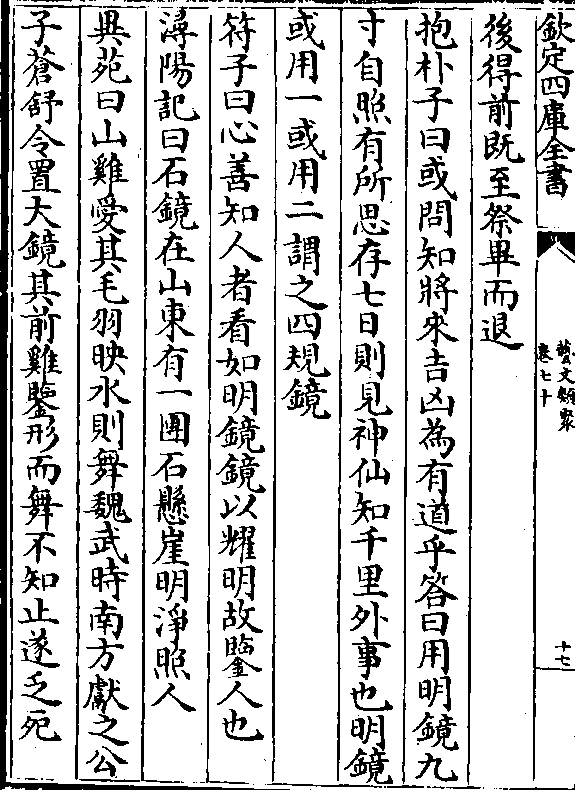 欽定四庫全書
藝文類聚
卷七十
十七
後得前既至祭畢而退
抱朴子曰或問知將來吉凶為有道乎答曰用明鏡九
寸自照有所思存七日則見神仙知千里外事也明鏡
或用一或用二謂之四規鏡
符子曰心善知人者看如明鏡鏡以耀明故鑒人也
潯陽記曰石鏡在山東有一團石懸崖明淨照人
異苑曰山雞愛其毛羽映水則舞魏武時南方獻之公
子蒼舒令置大鏡其前雞鑒形而舞不知止遂乏死